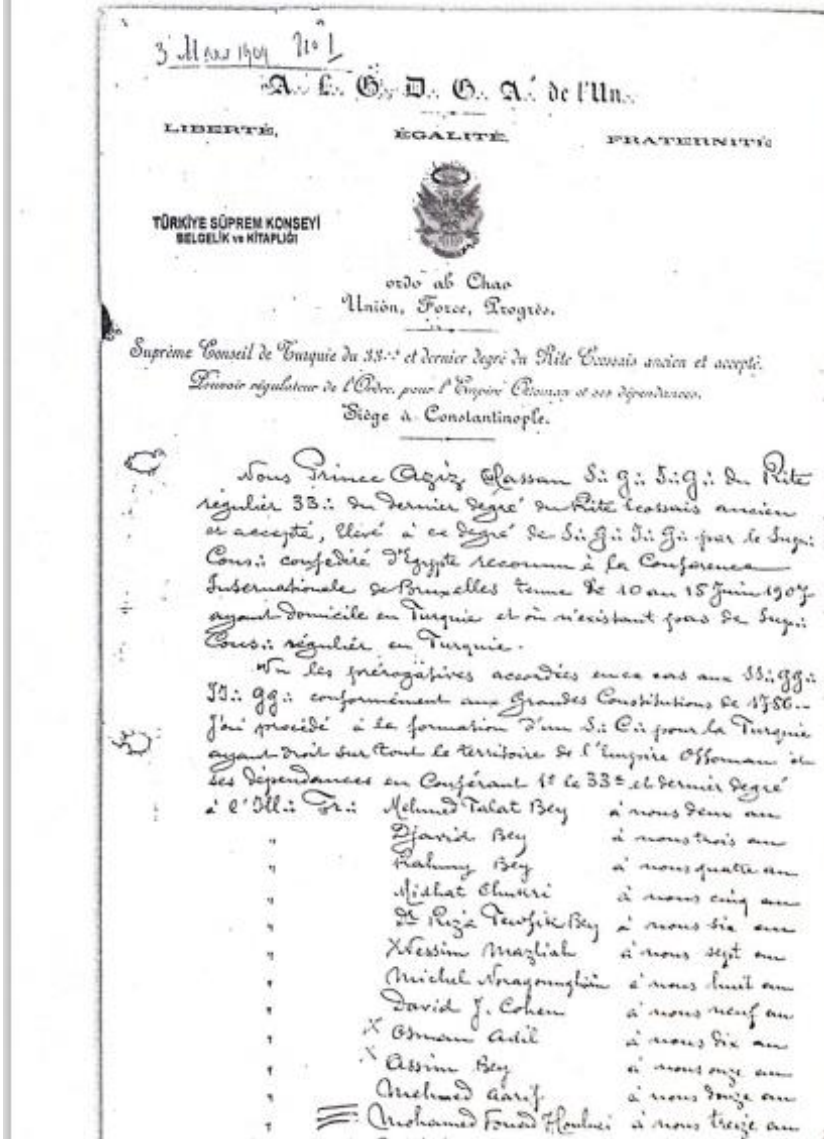 3 Mars 1909 No 1
A∴ L∴ G∴ D∴ G∴ A∴ de l'Un∴
LIBERTÉ, ÉGALITÉ, FRATERNITÉ
TÜRKİYE SÜPREM KONSEYİ
BELGELİK ve KİTAPLIĞI
ordo ab Chao
Union, Force, Progrès.
Suprême Conseil de Turquie du 33∴ et dernier degré du Rite Ecossais ancien et accepté.
Pouvoir régulateur de l'Ordre, pour l'Empire Ottoman et ses dépendances.
Siège à Constantinople.
Nous Prince Aziz Hassan S∴ G∴ I∴ G∴ du Rite
régulier 33∴ du dernier degré du Rite Ecossais ancien
et accepté, Elevé à ce degré de S∴ G∴ I∴ G∴ par le Sup∴
Cons∴ confédéré d'Egypte reconnu à la Conference
Internationale de Bruxelles tenue le 10 au 15 Juin 1907
ayant domicile en Turquie et où n'existant pas de Sup∴
Cons∴ régulier en Turquie.
Vu les prérogatives accordées en ce cas aux SS∴ GG∴
II∴ GG∴ conformément aux Grandes Constitutions de 1786
J'ai procédé à la formation d'un S∴ C∴ pour la Turquie
ayant droit sur tout le territoire de l'Empire Ottoman et
ses dépendances en Conférant 1º le 33e et dernier degré
à l'Ill∴ Fr∴ Mehmed Talat Bey à nous deux au
" Djavid Bey à nous trois au
" Rahmy Bey à nous quatre au
" Midhat Chukri à nous cinq au
" Dr Riza Tewfik Bey à nous six au
" Nessim Mazliah à nous sept au
" Michel Noradounghian à nous huit au
" David J. Cohen à nous neuf au
" X Osman Adil à nous dix au
" X Assim Bey à nous onze au
" Mehmed Aarif à nous douze au
" Mohamed Fouad Houlussi à nous treize au